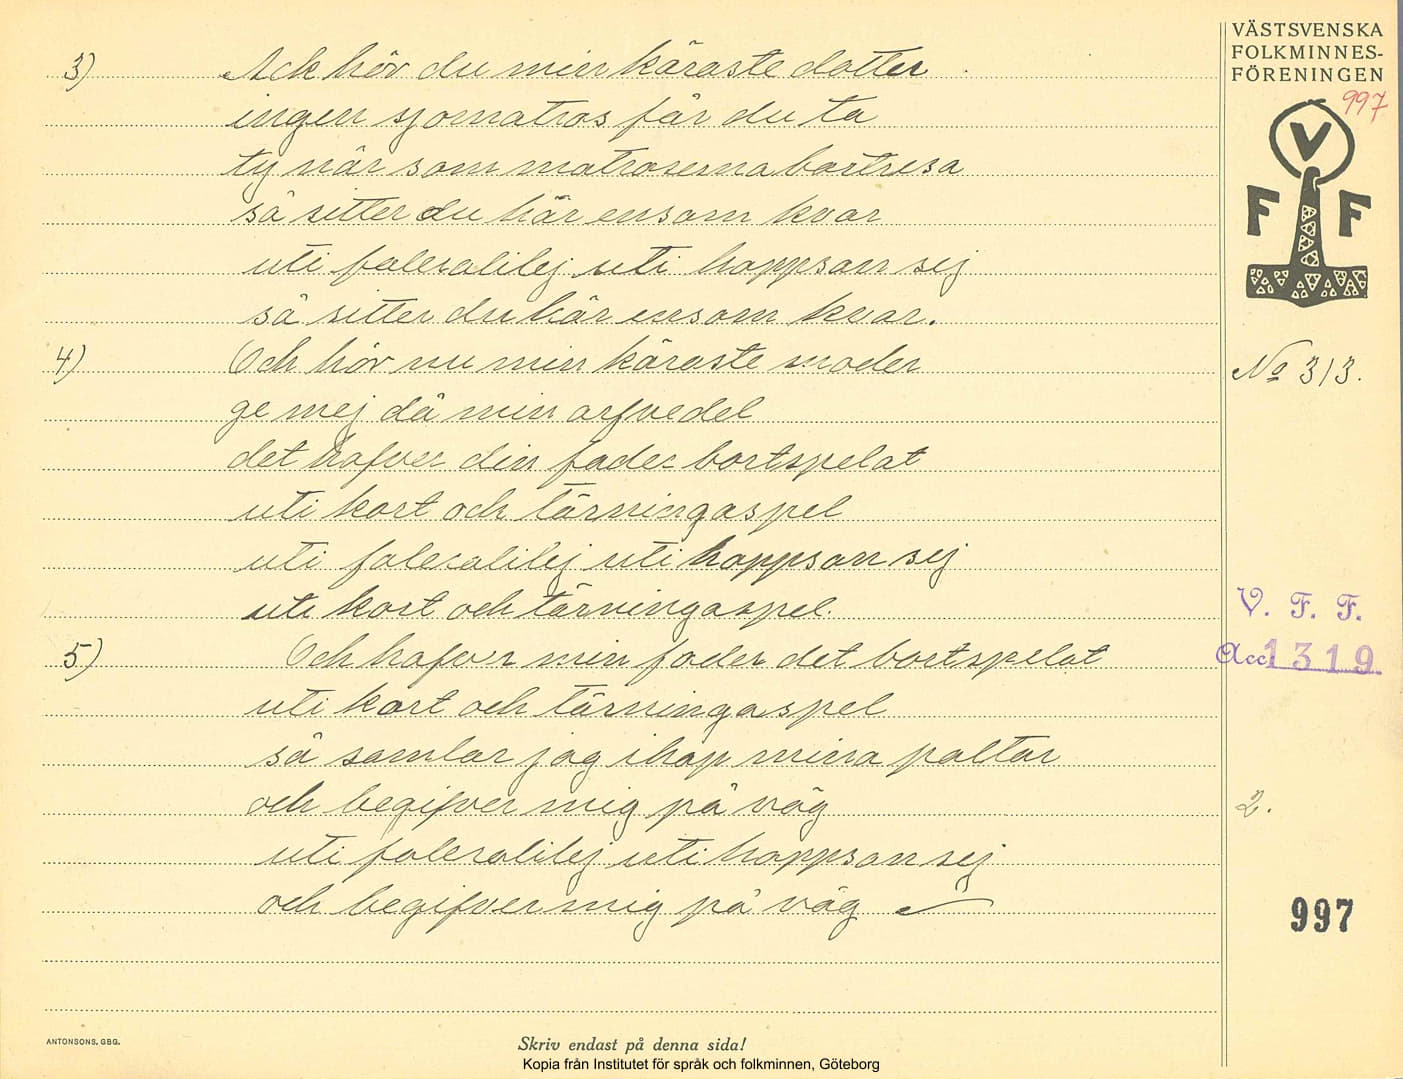 VÄSTSVENSKA
FOLKMINNES-
FÖRENINGEN
997
V
F F
3) Ack hör du min käraste dotter
ingen sjomatros får du ta
ty när som matroserna bortresa
så sitter du här ensam kvar
uti faleralilej uti hoppsan sej
så sitter du här ensam kvar.
4) Och hör nu min käraste moder
ge mej då min arfvedel
det hafver din fader bortspelat
uti kort och tärningaspel
uti faleralilej uti hoppsan sej
uti kort och tärningaspel.
5) Och hafver min fader det bortspelat
uti kort och tärningaspel
så samlar jag ihop mina paltar
och begifver mig på väg
uti faleralilej uti hoppsan sej
och begifver mig på väg
No 313.
V. F. F.
Acc. 1319
2.
997
ANTONSONS, GBG.
Skriv endast på denna sida!
Kopia från Institutet för språk och folkminnen, Göteborg